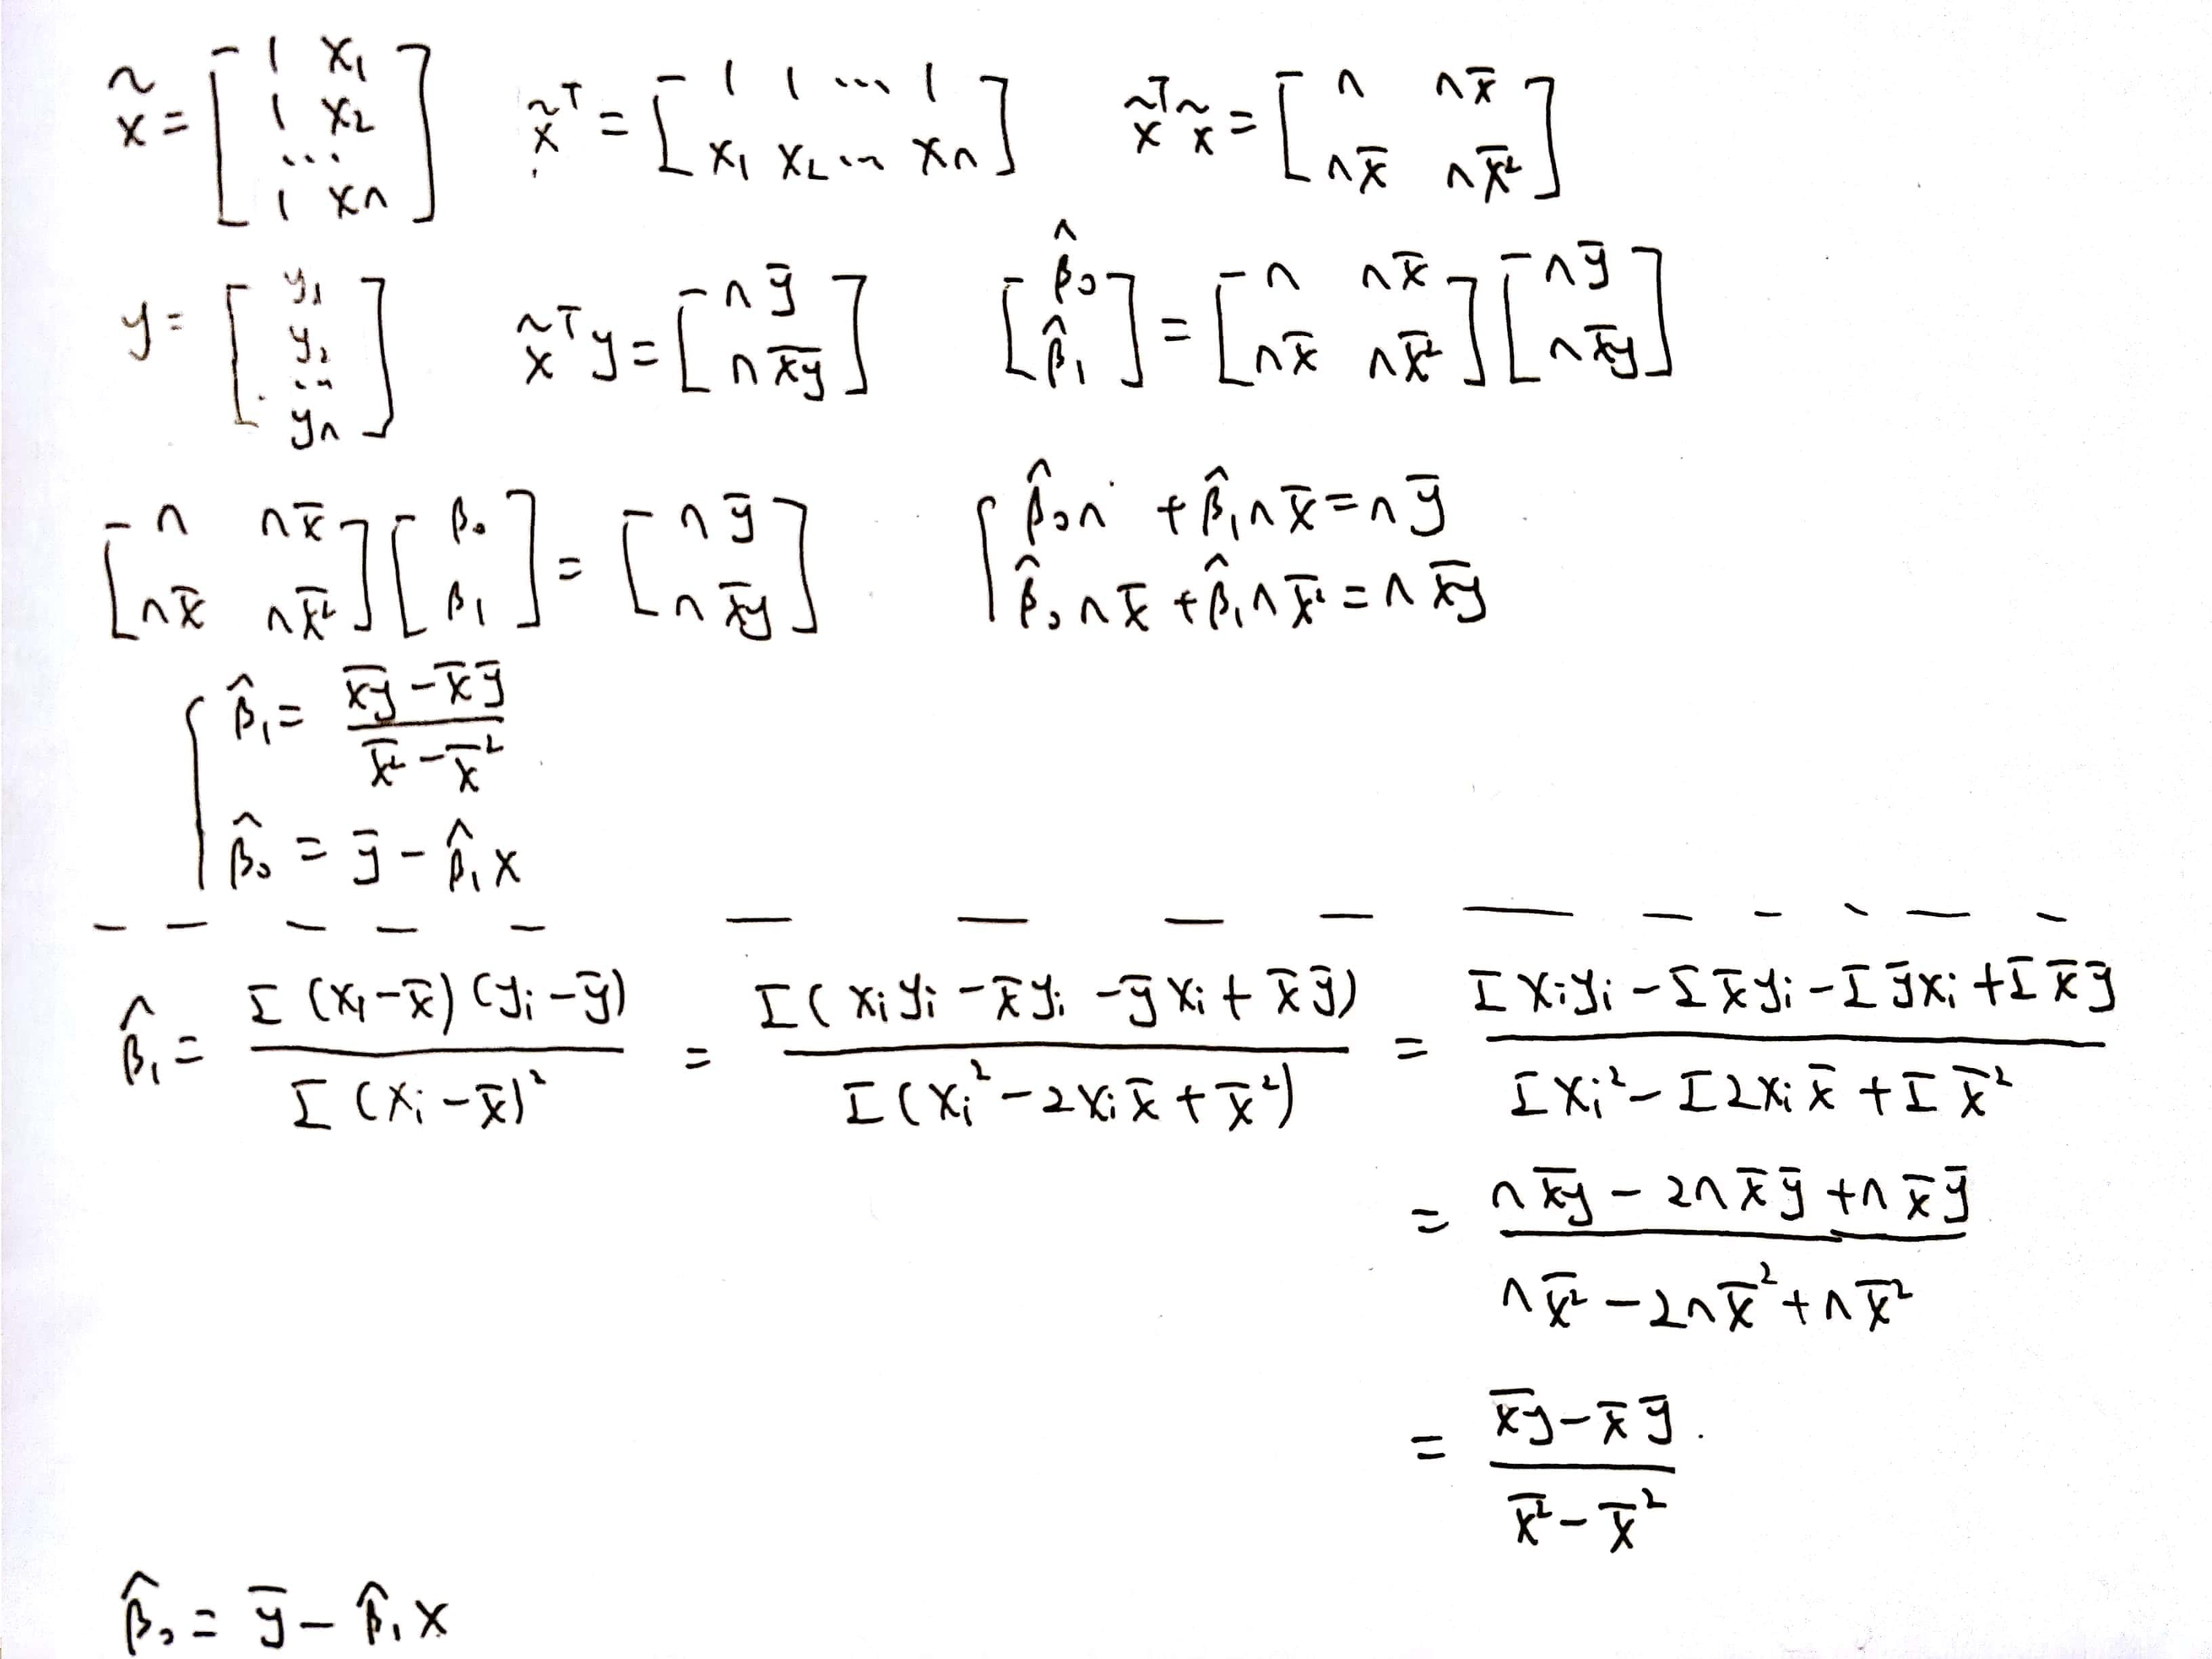 $\tilde{x} = \begin{bmatrix} 1 & x_1 \\ 1 & x_2 \\ \cdots \\ 1 & x_n \end{bmatrix}$ $\tilde{x}^T = \begin{bmatrix} 1 & 1 & \cdots & 1 \\ x_1 & x_2 & \cdots & x_n \end{bmatrix}$ $\tilde{x}^T \tilde{x} = \begin{bmatrix} n & n\bar{x} \\ n\bar{x} & n\overline{x^2} \end{bmatrix}$
$y = \begin{bmatrix} y_1 \\ y_2 \\ \cdots \\ y_n \end{bmatrix}$ $\tilde{x}^T y = \begin{bmatrix} n\bar{y} \\ n\overline{xy} \end{bmatrix}$ $\begin{bmatrix} \hat{\beta}_0 \\ \hat{\beta}_1 \end{bmatrix} = \begin{bmatrix} n & n\bar{x} \\ n\bar{x} & n\overline{x^2} \end{bmatrix} \begin{bmatrix} n\bar{y} \\ n\overline{xy} \end{bmatrix}$
$\begin{bmatrix} n & n\bar{x} \\ n\bar{x} & n\overline{x^2} \end{bmatrix} \begin{bmatrix} \beta_0 \\ \beta_1 \end{bmatrix} = \begin{bmatrix} n\bar{y} \\ n\overline{xy} \end{bmatrix}$ $\begin{cases} \hat{\beta}_0 n + \hat{\beta}_1 n\bar{x} = n\bar{y} \\ \hat{\beta}_0 n\bar{x} + \hat{\beta}_1 n\overline{x^2} = n\overline{xy} \end{cases}$
$\begin{cases} \hat{\beta}_1 = \frac{\overline{xy} - \bar{x}\bar{y}}{\overline{x^2} - \bar{x}^2} \\ \hat{\beta}_0 = \bar{y} - \hat{\beta}_1 x \end{cases}$
$\hat{\beta}_1 = \frac{\Sigma (x_i - \bar{x})(y_i - \bar{y})}{\Sigma (x_i - \bar{x})^2} = \frac{\Sigma (x_i y_i - \bar{x} y_i - \bar{y} x_i + \bar{x}\bar{y})}{\Sigma (x_i^2 - 2x_i\bar{x} + \bar{x}^2)} = \frac{\Sigma x_i y_i - \Sigma \bar{x} y_i - \Sigma \bar{y} x_i + \Sigma \bar{x}\bar{y}}{\Sigma x_i^2 - \Sigma 2x_i\bar{x} + \Sigma \bar{x}^2}$
$= \frac{n\overline{xy} - 2n\bar{x}\bar{y} + n\bar{x}\bar{y}}{n\overline{x^2} - 2n\bar{x}^2 + n\bar{x}^2}$
$= \frac{\overline{xy} - \bar{x}\bar{y}}{\overline{x^2} - \bar{x}^2}$.
$\hat{\beta}_0 = \bar{y} - \hat{\beta}_1 x$